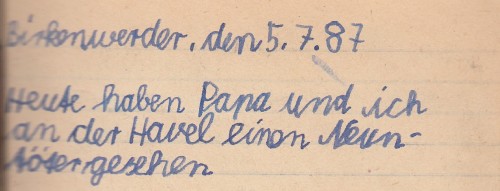 Birkenwerder, den 5.7.87
Heute haben Papa und ich
an der Havel einen Neun-
töter gesehen